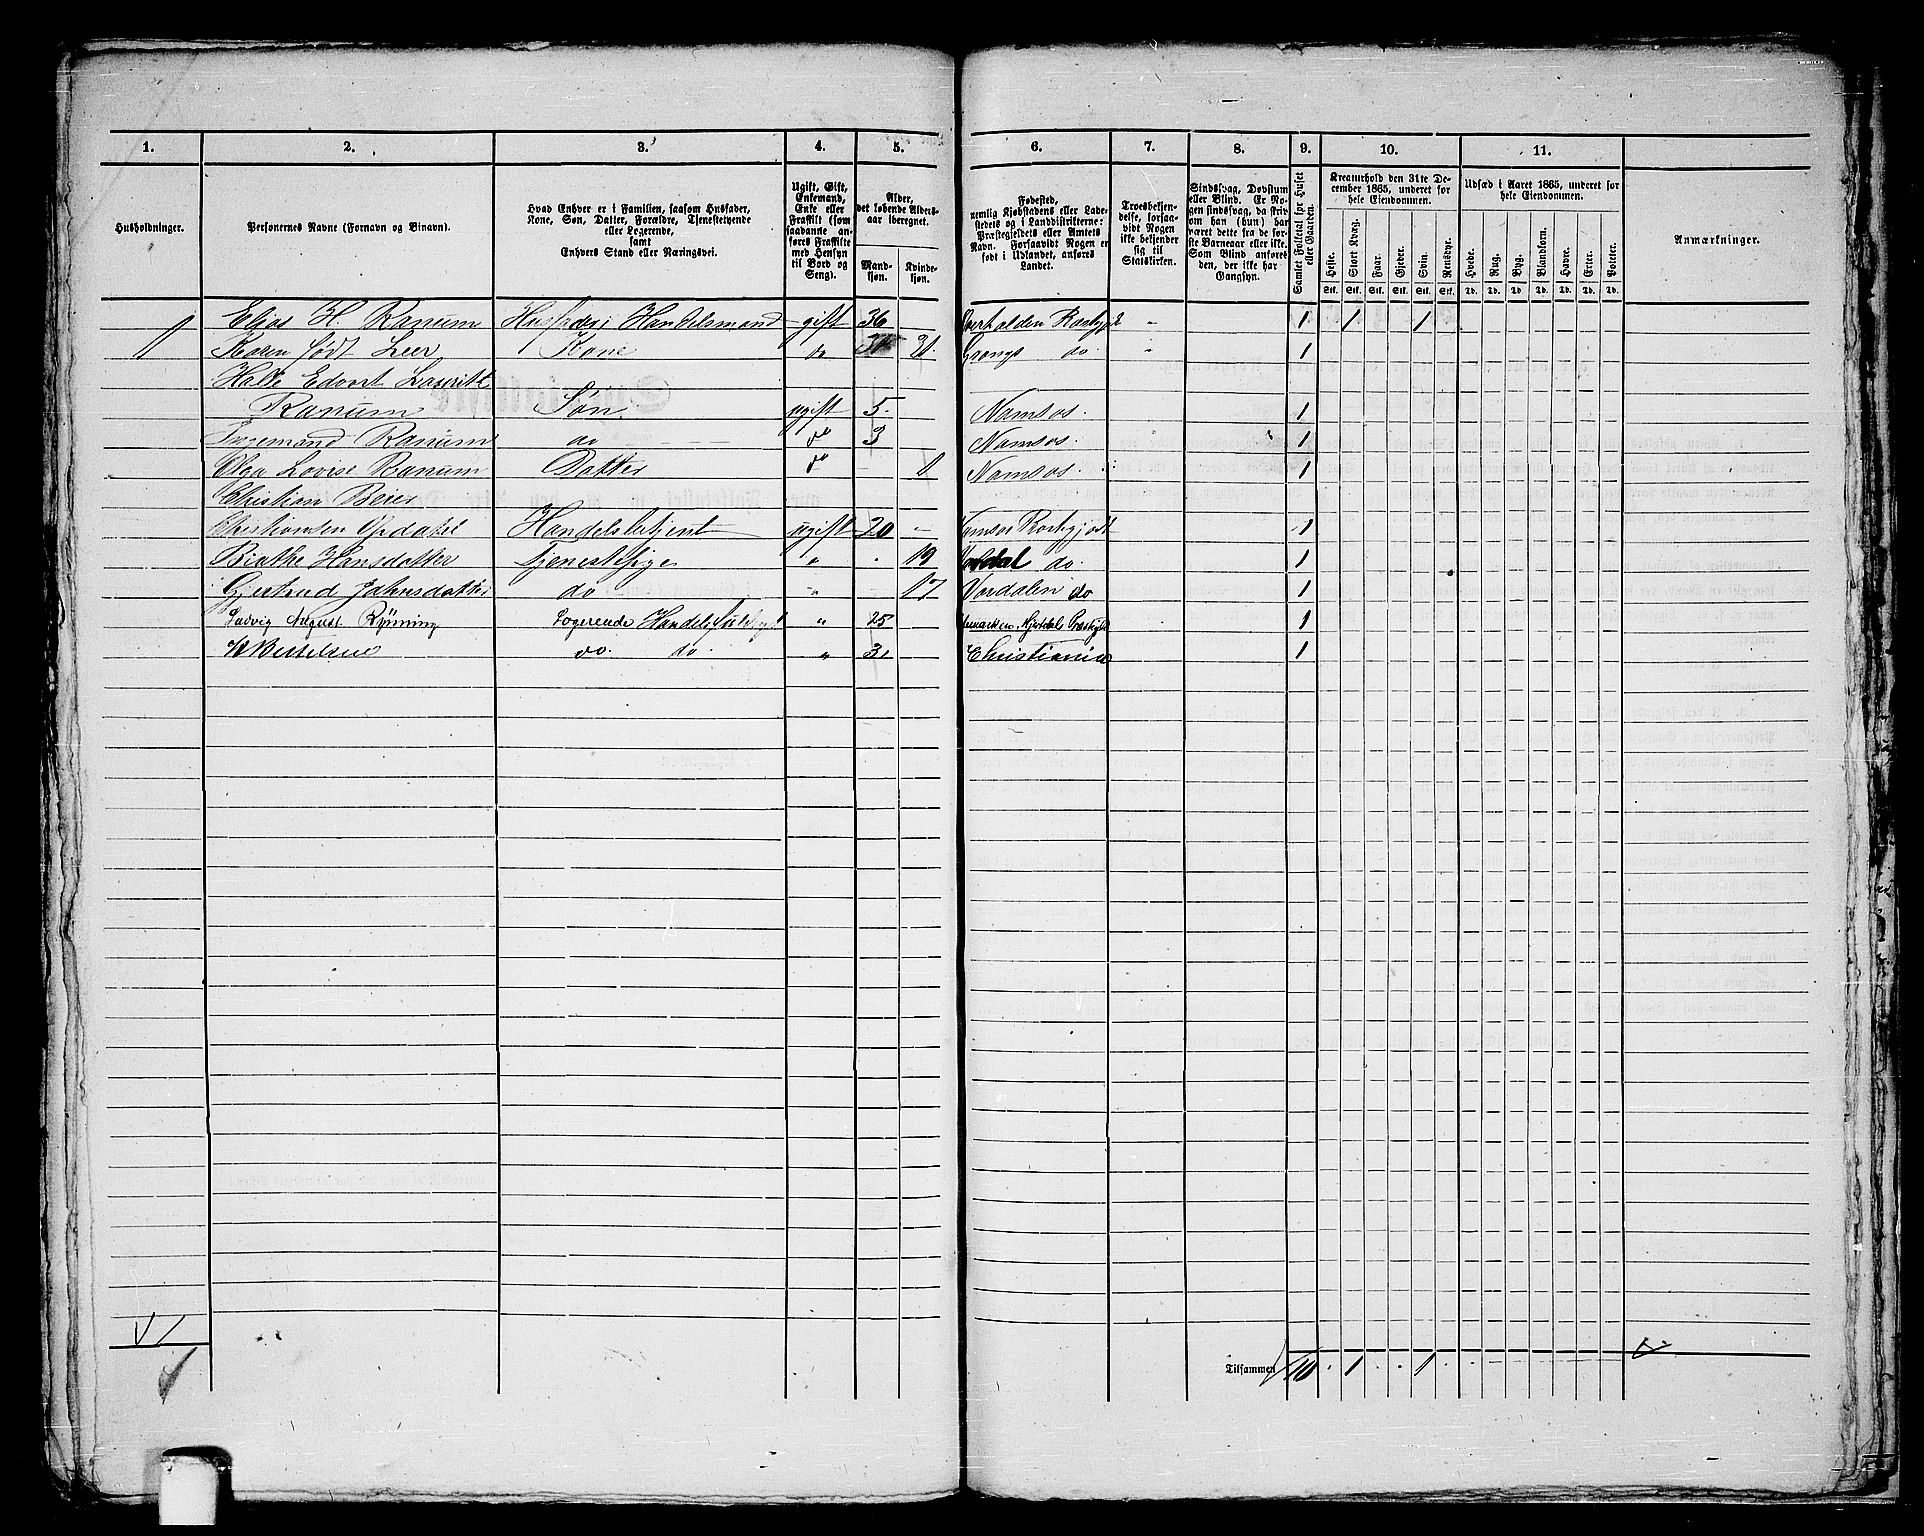 1. 2. 3. 4. 5. 6. 7. 8. 9. 10. 11.
Husholdninger.
Personernes Navne (Fornavn og Binavn).
Hvad Enhver er i Familien, saasom Husfader,
Kone, Søn, Datter, Forældre, Tjenestetyende
eller Logerende,
samt
Enhvers Stand eller Næringsvei.
Ugift, Gift,
Enkemand,
Enke eller
Fraskilt (som
saadanne an-
føres Fraskilte
med Hensyn
til Bord og
Seng).
Alder,
det løbende Alders-
aar iberegnet.
Mand-
kjøn.
Kvinde-
kjøn.
Fødested,
nemlig Kjøbstadens eller Lade-
stedets og i Landdistrikterne:
Præstegjeldets eller Amtets
Navn. Forsaavidt Nogen er
født i Udlandet, anføres
Landet.
Troesbekjen-
delse, forsaa-
vidt Nogen
ikke bekjender
sig til
Statskirken.
Sindssvag, Døvstum
eller Blind. Er No-
gen sindssvag, da skriv
om han (hun) har
været dette fra de før-
ste Barneaar eller ikke.
Som Blind anføret
den, der ikke har
Gangsyn.
Samlet Folketal for Huset
eller Gaarden.
Kreaturhold den 31te De-
cember 1865, underet for
hele Eiendommen.
Heste. Stort Kvæg. Faar. Gjeder. Svin. Rensdyr.
Stk. Stk. Stk. Stk. Stk. Stk.
Udsæd i Aaret 1865, underet for
hele Eiendommen.
Hvede. Rug. Byg. Blandkorn. Havre. Erter. Poteter.
Td. Td. Td. Td. Td. Td. Td.
Anmærkninger.
1 Elias H. Ranum Husfader Handelsmand gift 36 Overhalden 1 1 1
Karen født Leer Kone do 31. Grongs do. 1
Halle Edvart
Ranum Søn ugift 5. Namsos. 1
Ingemand Ranum do do 3 Namsos. 1
Olga Lovise Ranum Datter do 1 Namsos. 1
Christian Beier
Christiansen Opdahl Handelsbetjent ugift 20 Namsos 1
Hansdatter Tjenestepige " 19 do. 1
Gjertrud Jahnsdatter do " 17 Værdalen do 1
Ludvig August Rynning Logerende " 25 1
Bertelsen do. do. " 31 Christiania 1
Tilsammen 10 1 1